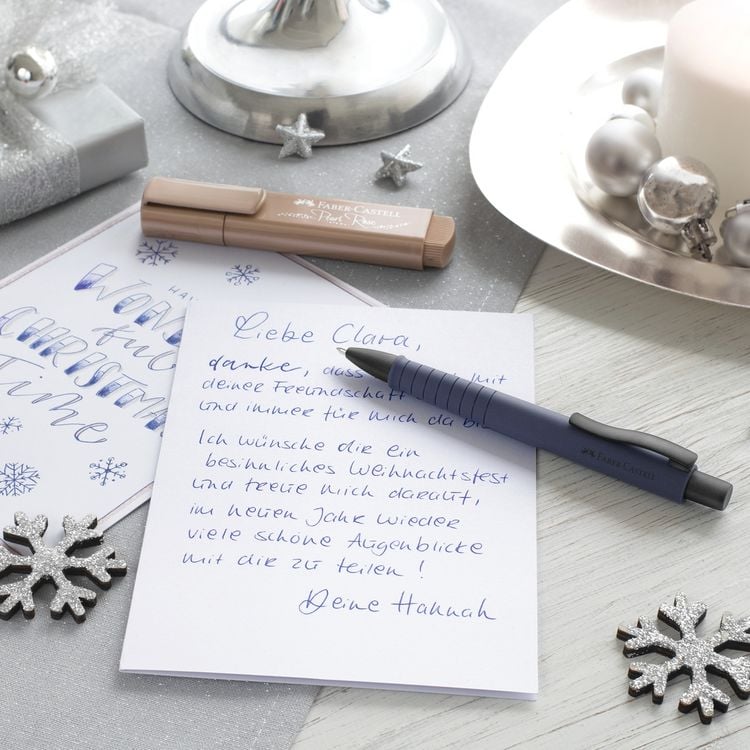 FABER-CASTELL
Pearl Rose
WON
ful
CHRISTMA
Time
Liebe Clara,
danke, dass mit
deiner Freundschaft
und immer für mich da
Ich wünsche dir ein
besinnliches Weihnachtsfest
und freue mich darauf,
im neuen Jahr wieder
viele schöne Augenblicke
mit dir zu teilen!
Deine Hannah
FABER-CASTELL